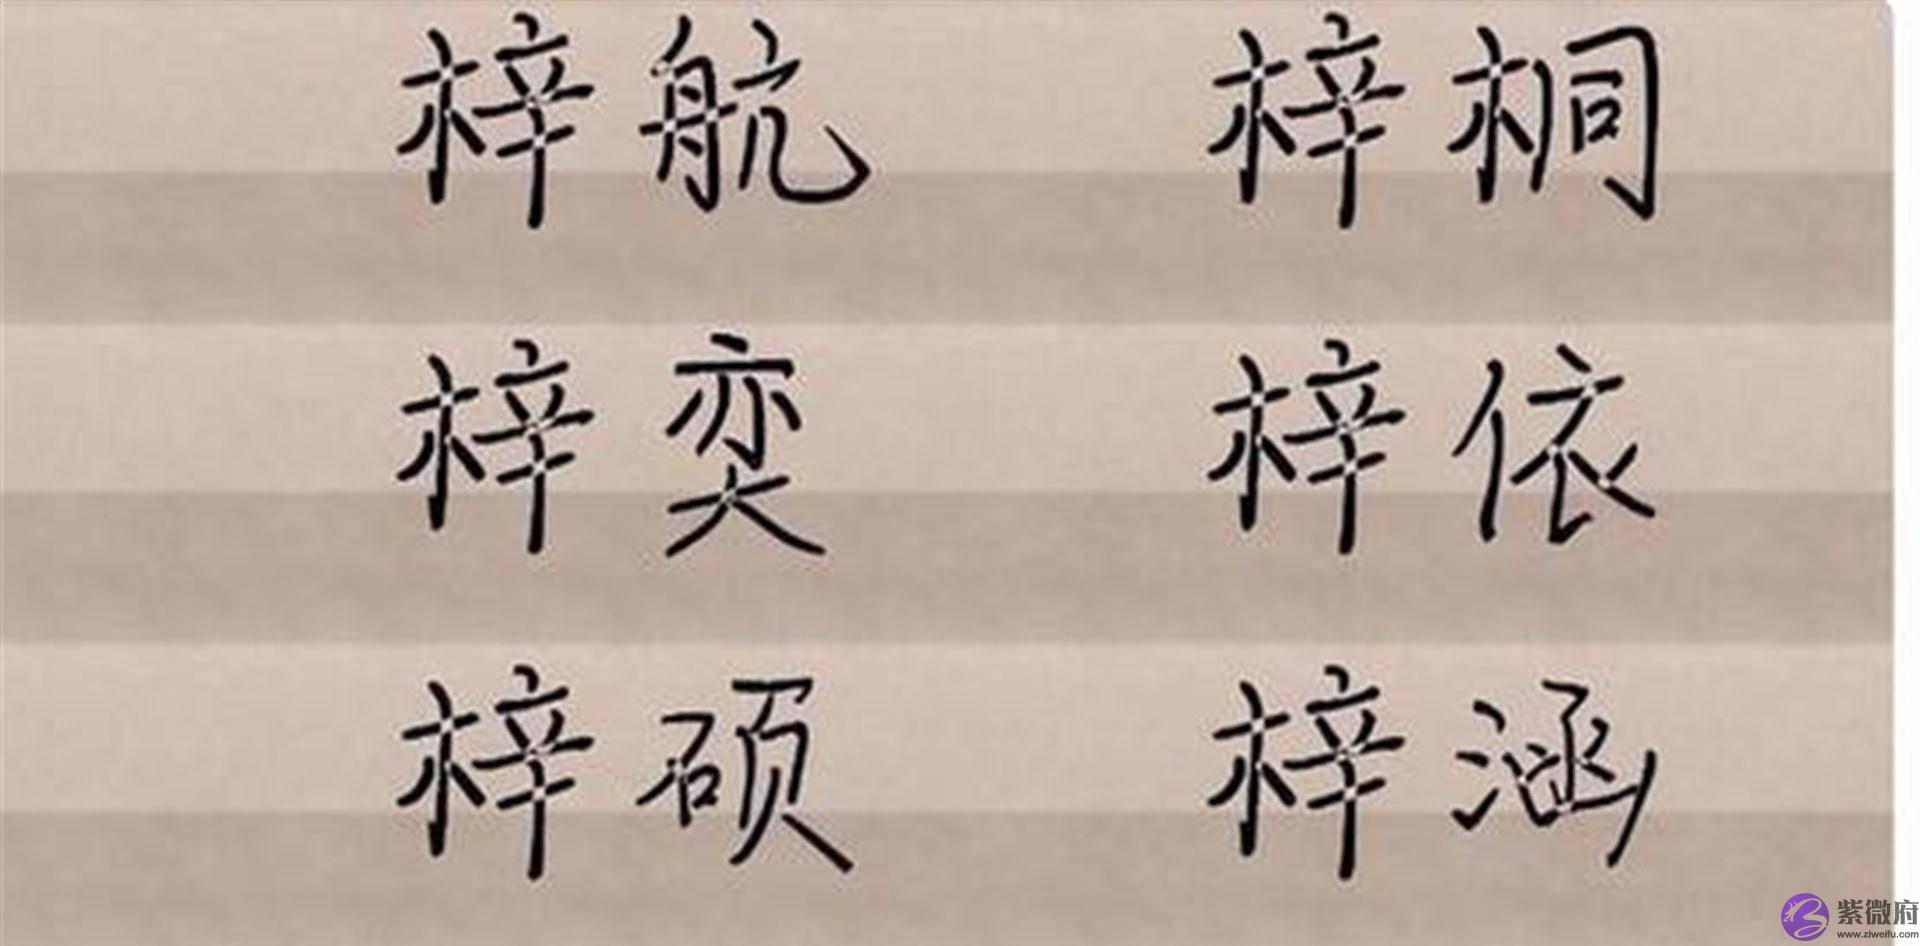 梓航 梓桐
梓奕 梓依
梓硕 梓涵
紫微府
www.ziweifu.com